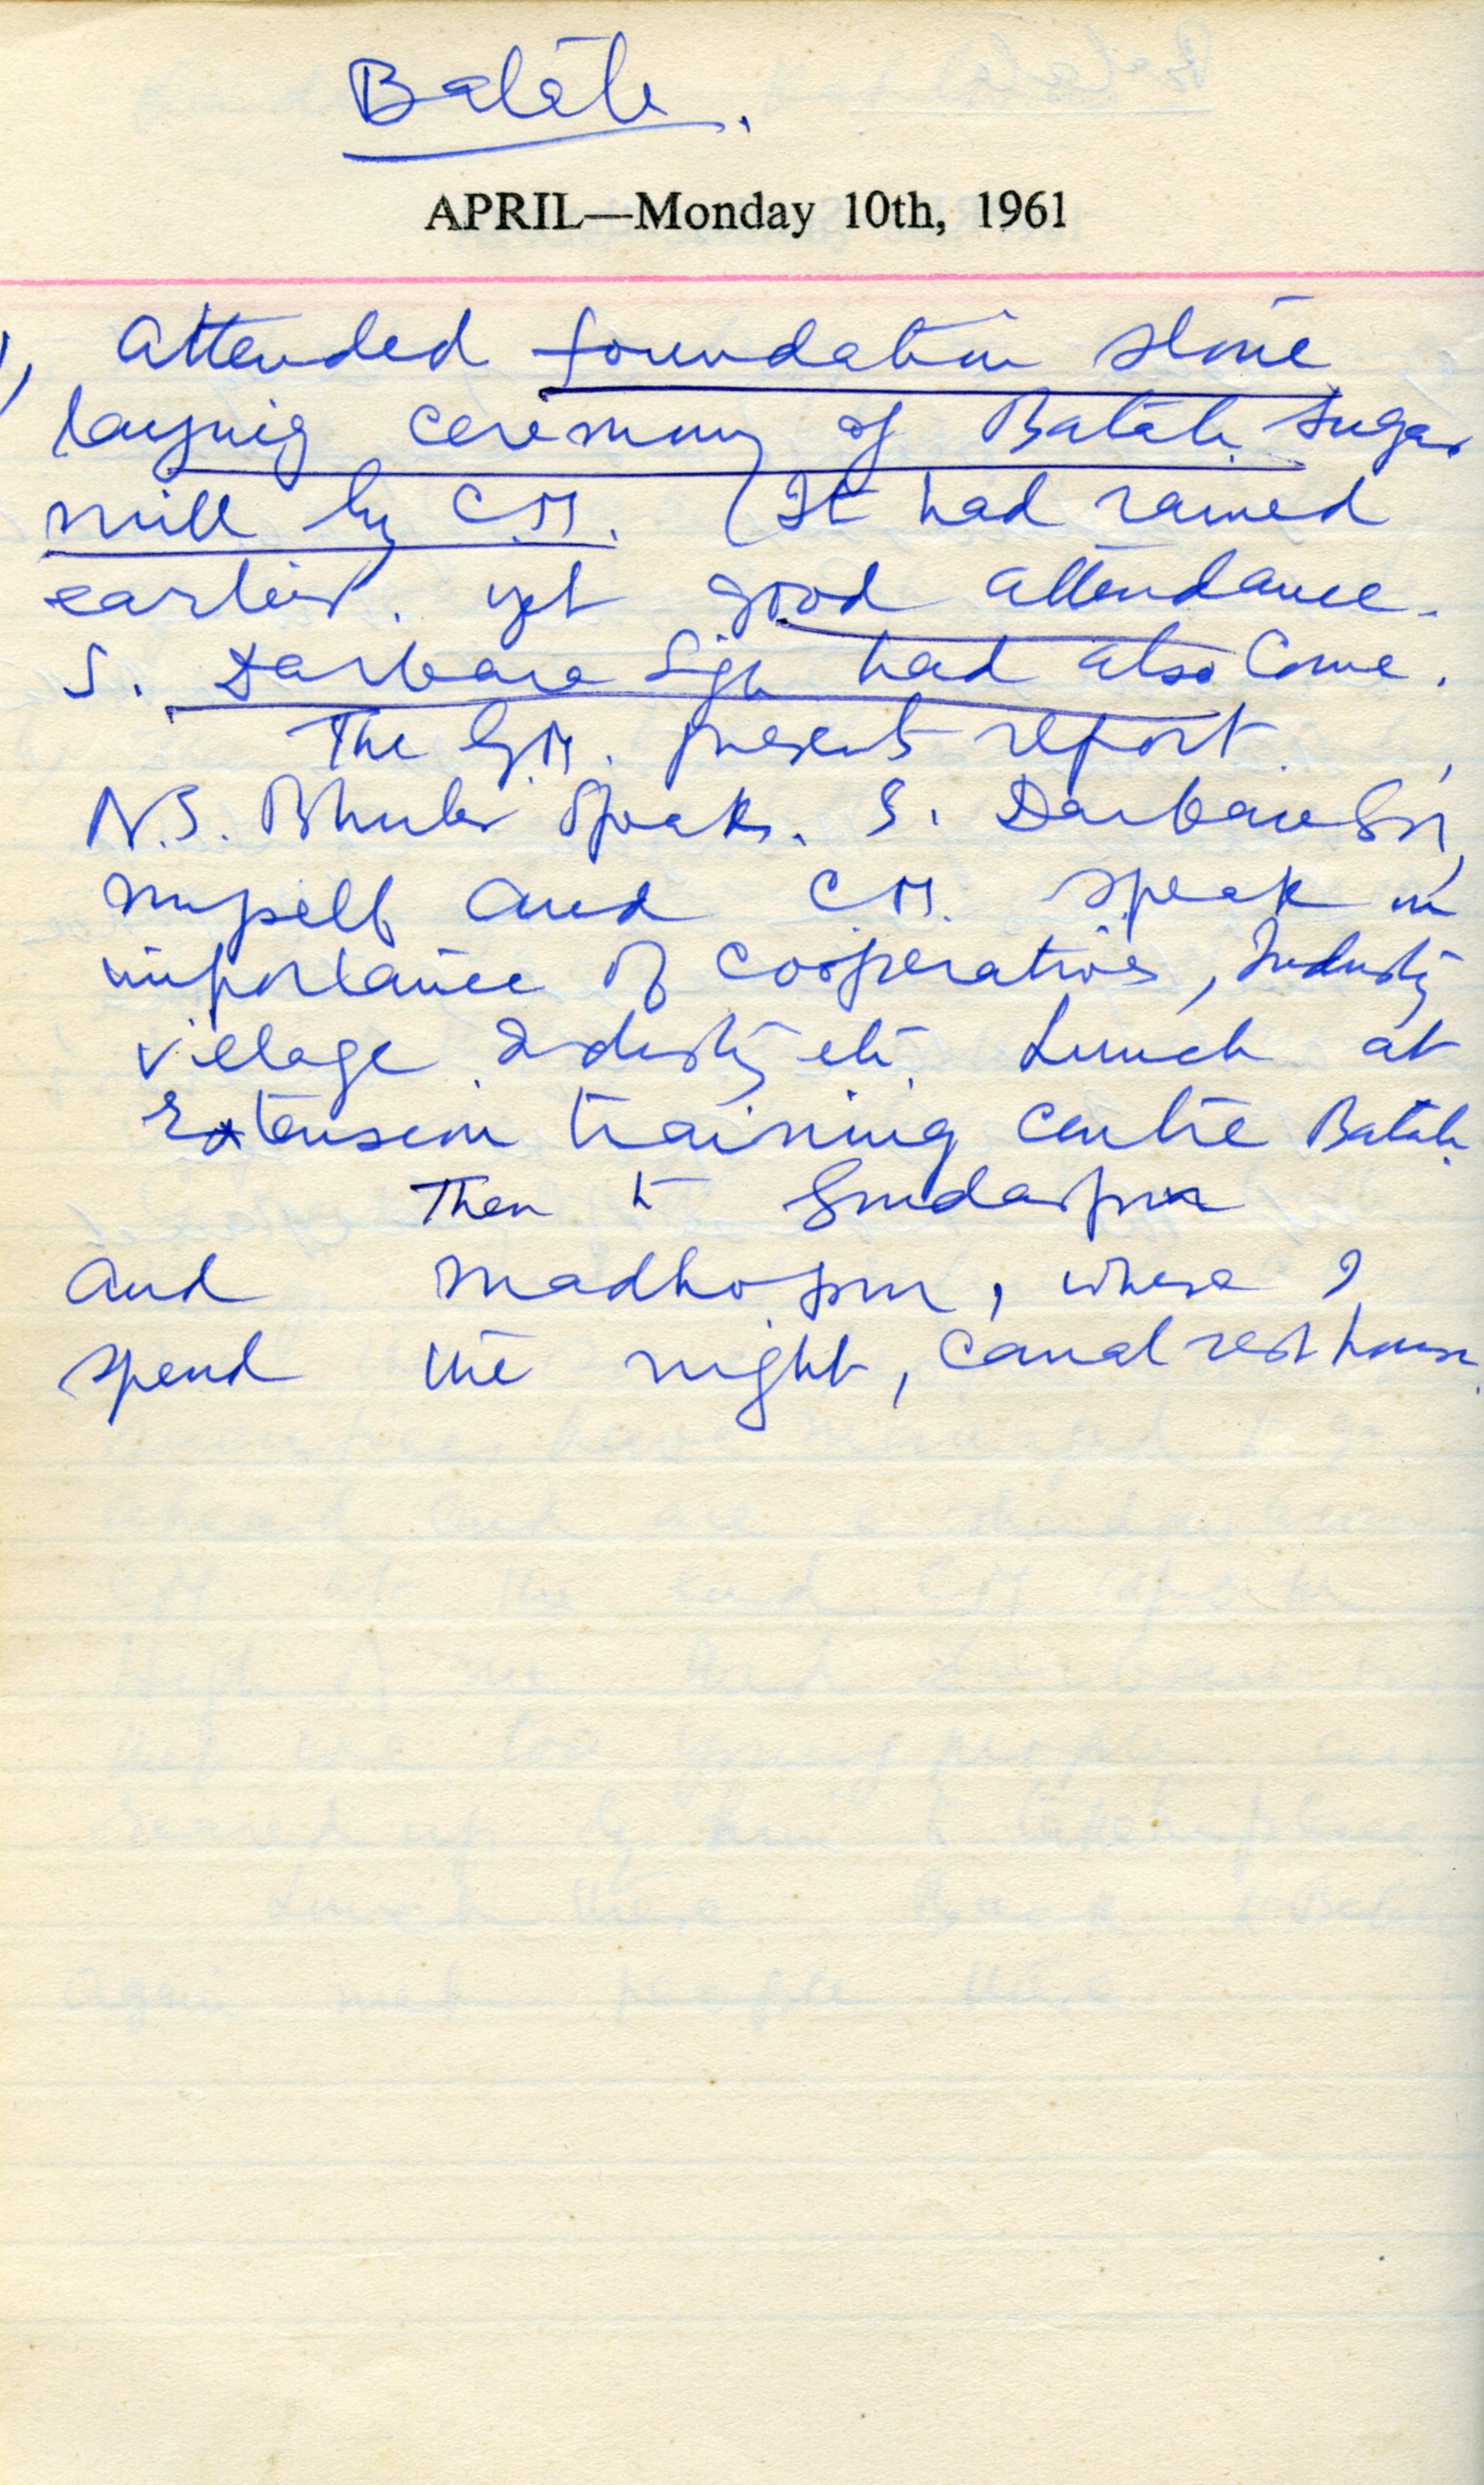 Batala.
APRIL—Monday 10th, 1961
1, Attended foundation stone
laying ceremony of Batala Sugar
mill by C.M. (It had rained
earlier. yet good attendance.
S. Darbara Sigh had also come.
The G.M. presents report.
N.S. Bhuler Speaks. S. Darbara Sn,
myself and C.M. speak on
importance of cooperatives, Industry
village Industry etc. Lunch at
Extension training centre Batala.
Then to
and Madhopur, where I
spend the night, Canal rest house.